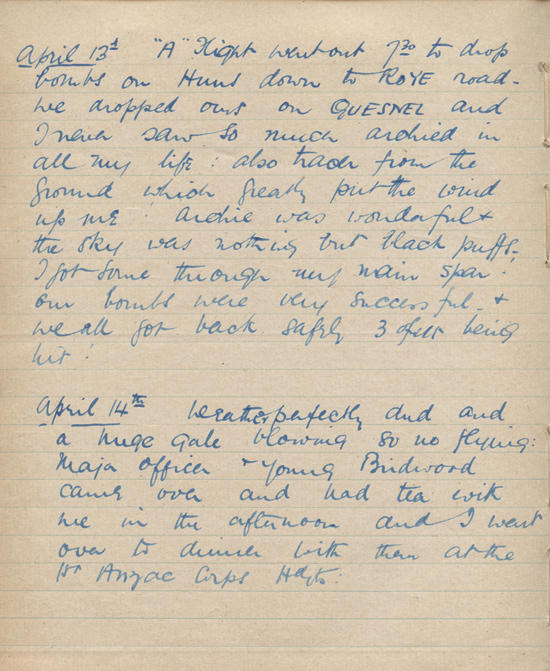 April 13th "A" Flight went out 7.30 to drop
bombs on Huns down to ROYE road -
we dropped ours on QUESNEL and
I never saw so much archied in
all my life : also tracer from the
ground which greatly put the wind
up me ! Archie was wonderful &
the sky was nothing but black puffs.
I got some through my main spar.
our bombs were very successful - &
we all got back safely 3 of us being
hit !
April 14th Weather perfectly dud and
a huge gale blowing so no flying :
Major Officer & Young Birdwood
came over and had tea with
me in the afternoon and I went
over to dinner with them at the
1st Anzac Corps Hdqts :